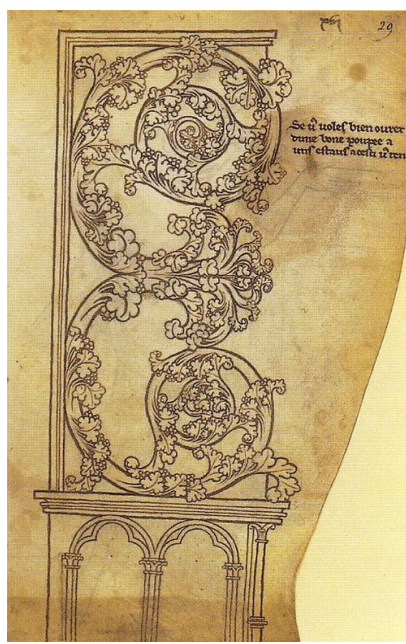 29
Se v̄ voles bien ovrer
dune bone poupee a
uns estaus a cesti v̄ ten